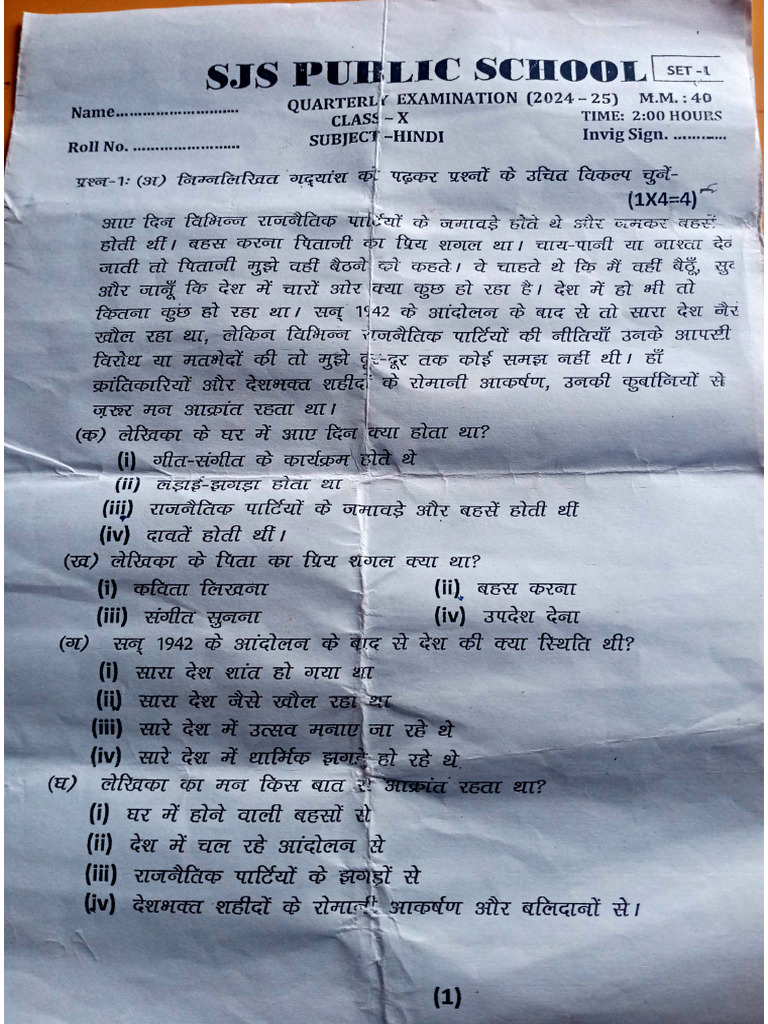 SJS PUBLIC SCHOOL SET -1
Name............................ QUARTERLY EXAMINATION (2024 – 25) M.M. : 40
CLASS – X TIME: 2:00 HOURS
Roll No. ........................ SUBJECT –HINDI Invig Sign. ............
प्रश्न-1: (अ) निम्नलिखित गद्यांश को पढ़कर प्रश्नों के उचित विकल्प चुनें-
(1X4=4)
आए दिन विभिन्न राजनैतिक पार्टियों के जमावड़े होते थे और जमकर बहसें
होती थीं। बहस करना पिताजी का प्रिय शगल था। चाय-पानी या नाश्ता देन
जाती तो पिताजी मुझे वहीं बैठने को कहते। वे चाहते थे कि मैं वहीं बैठूँ,
और जानूँ कि देश में चारों ओर क्या कुछ हो रहा है। देश में हो भी तो
कितना कुछ हो रहा था। सन् 1942 के आंदोलन के बाद से तो सारा देश जैसे
खौल रहा था, लेकिन विभिन्न राजनैतिक पार्टियों की नीतियाँ उनके आपसी
विरोध या मतभेदों की तो मुझे दूर-दूर तक कोई समझ नहीं थी। हाँ
क्रांतिकारियों और देशभक्त शहीदों के रोमानी आकर्षण, उनकी कुर्बानियों से
ज़रूर मन आक्रांत रहता था।
(क) लेखिका के घर में आए दिन क्या होता था?
(i) गीत-संगीत के कार्यक्रम होते थे
(ii) लड़ाई-झगड़ा होता था
(iii) राजनैतिक पार्टियों के जमावड़े और बहसें होती थीं
(iv) दावतें होती थीं।
(ख) लेखिका के पिता का प्रिय शगल क्या था?
(i) कविता लिखना (ii) बहस करना
(iii) संगीत सुनना (iv) उपदेश देना
(ग) सन् 1942 के आंदोलन के बाद से देश की क्या स्थिति थी?
(i) सारा देश शांत हो गया था
(ii) सारा देश जैसे खौल रहा था
(iii) सारे देश में उत्सव मनाए जा रहे थे
(iv) सारे देश में धार्मिक झगड़े हो रहे थे.
(घ) लेखिका का मन किस बात से आक्रांत रहता था?
(i) घर में होने वाली बहसों से
(ii) देश में चल रहे आंदोलन से
(iii) राजनैतिक पार्टियों के झगड़ों से
(iv) देशभक्त शहीदों के रोमानी आकर्षण और बलिदानों से।
(1)